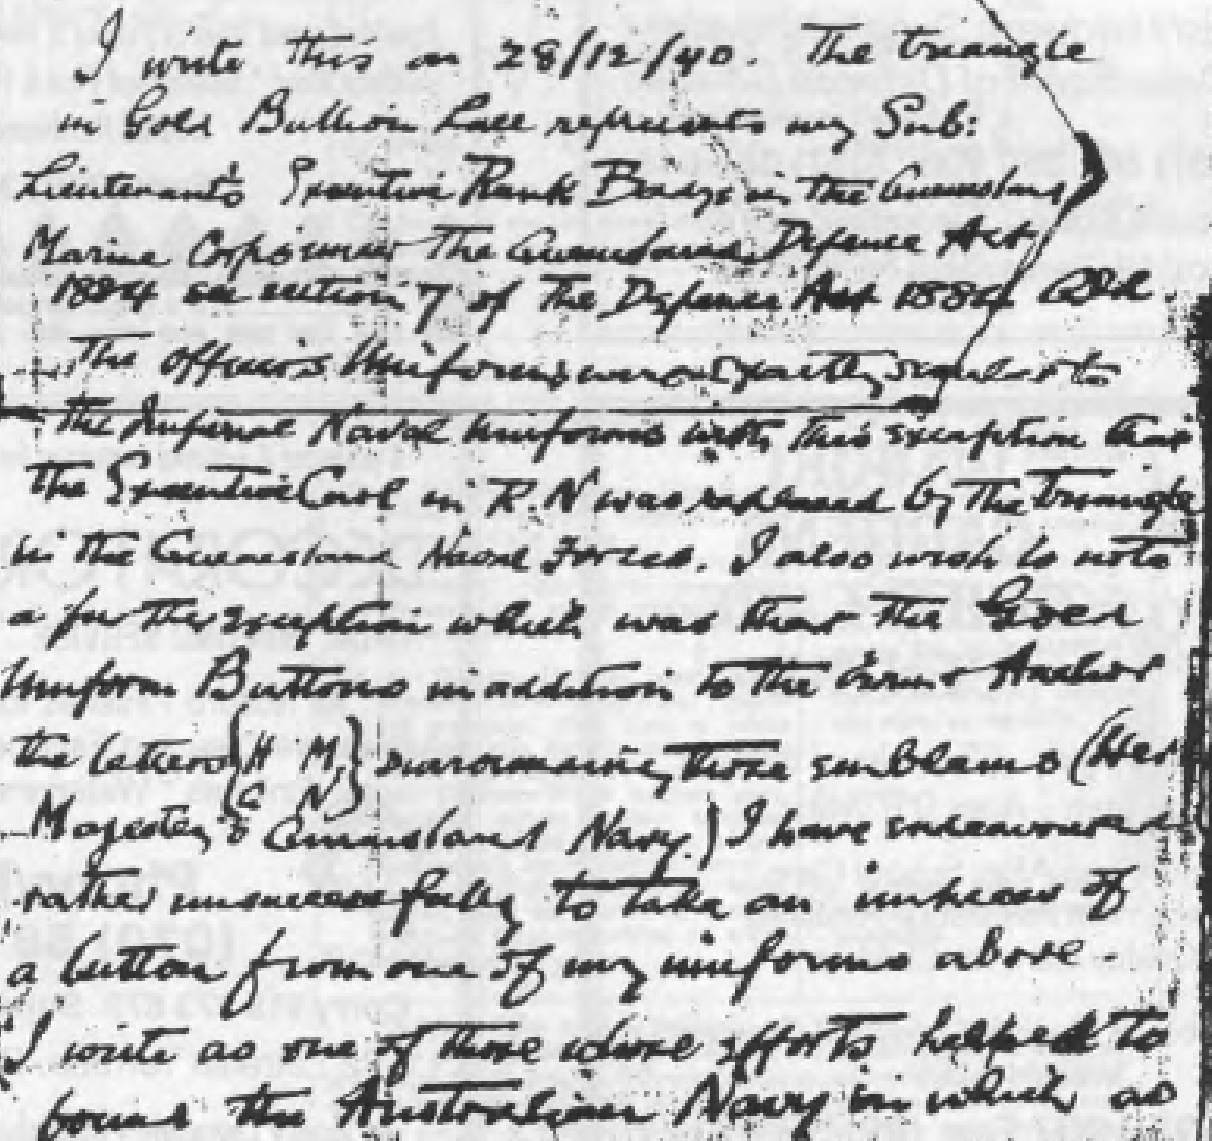 I write this on 28/12/40. The triangle
in Gold Bullion Lace represents my Sub:
Lieutenant's Executive Rank Badge in the Queensland
Marine Corps under The Queensland Defence Act
1884 see section 7 of The Defence Act 1884 Qld.
The officers Uniforms were exactly similar to
the Imperial Naval Uniforms with this exception that
the Executive Curl in R.N was replaced by the Triangle
in the Queensland Naval Forces. I also wish to note
a further exception which was that the Gold
Uniform Buttons in addition to the Crown & Anchor
the letters {H M, Q N} surrounding those emblems (Her
Majesty's Queensland Navy.) I have endeavoured
rather unsuccessfully to take an impress of
a button from one of my uniforms above.
I write as one of those whose efforts helped to
found the Australian Navy in which as